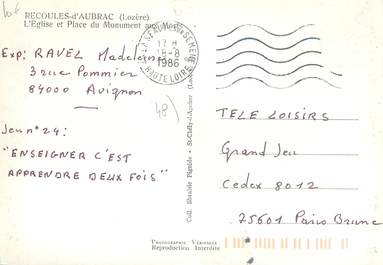 10€
RECOULES-d'AUBRAC (Lozère)
L'Eglise et Place du Monument aux Morts
17 H
18-8
1986
HAUTE LOIRE
Exp: RAVEL Madeleine
3 rue Pommier
84000 Avignon
48)
Jeu n° 24:
"ENSEIGNER C'EST
APPRENDRE DEUX FOIS"
Coll. librairie Pignide - St-Chély-d'Apcher
TELE LOISIRS
Grand Jeu
Cedex 8012
75601 Paris Brune
Photographie Véritable
Reproduction Interdite